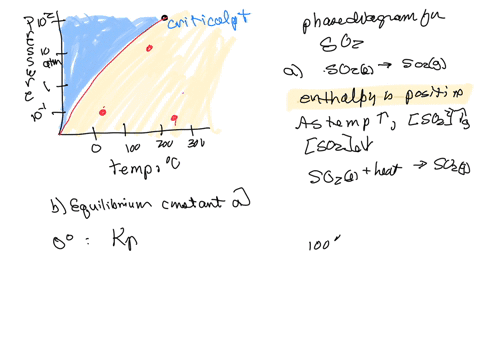 Pressure
10²
10
atm
1
10⁻¹
0 100 200 300
temp, °C
critical pt
phase diagram for
SO₂
a) SO₂(l) → SO₂(g)
enthalpy is positive
As temp ↑, [SO₂]g ↑,
[SO₂]l ↓
SO₂(l) + heat → SO₂(g)
b) Equilibrium constant a)
0° : Kp
100°